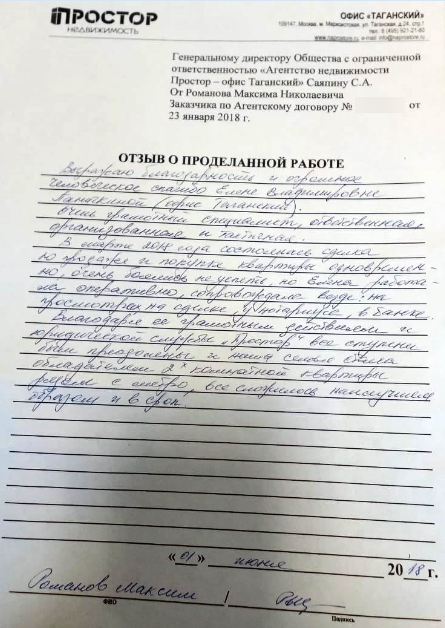 ПРОСТОР
НЕДВИЖИМОСТЬ
ОФИС «ТАГАНСКИЙ»
109147, Москва, м. Марксистская, ул. Таганская, д.24, стр.1
тел.: 8 (495) 921-21-80
Генеральному директору Общества с ограниченной
ответственностью «Агентство недвижимости
Простор – офис Таганский» Саяпину С.А.
От Романова Максима Николаевича
Заказчика по Агентскому договору № от
23 января 2018 г.
ОТЗЫВ О ПРОДЕЛАННОЙ РАБОТЕ
Выражаю благодарность и огромное
человеческое спасибо Елене Владимировне
(офис Таганский).
Очень грамотный специалист, ответственная,
организованная и
В марте года состоялись сделка
по продаже и покупке квартиры одновремен-
но, очень боялись не успеть, но Елена работа-
ла оперативно, сопровождала везде: на
просмотрах, на сделке у нотариуса, в банке.
Благодаря её грамотным действиям и
юридической службы „Простор" все ступени
были преодолены и наша семья стала
обладателем 2х комнатной квартиры
рядом с метро, все сложилось наилучшим
образом и в срок.
«01» июня 2018 г.
Романов Максим /
ФИО Подпись